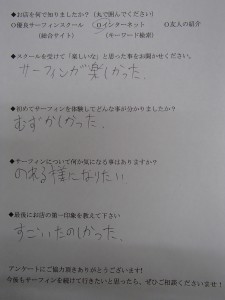 ◆お店を何で知りましたか？（丸で囲んでください）
○優良サーフィンスクール　○インターネット　○友人の紹介
（総合サイト）　（キーワード検索）
◆スクールを受けて「楽しいな」と思った事をお聞かせください。
サーフィンが楽しかった。
◆初めてサーフィンを体験してどんな事が分かりましたか？
むずかしかった。
◆サーフィンについて何か気になる事はありますか？
のれる様になりたい
◆最後にお店の第一印象を教えて下さい
すごいたのしかった。
アンケートにご協力頂きありがとうございます！
今後もサーフィンを続けて行きたいと思ったら、ぜひご相談くださいませ！